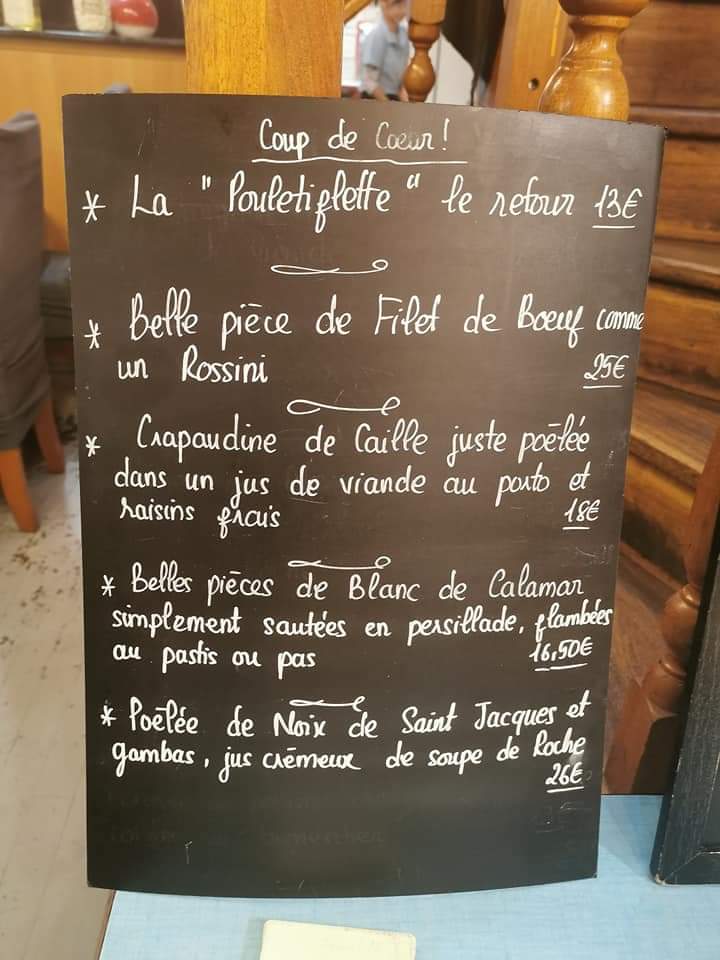 Coup de Coeur!
* La "Pouletiflette" le retour 13€
* Belle pièce de Filet de Boeuf comme
un Rossini 25€
* Crapaudine de Caille juste poêlée
dans un jus de viande au porto et
raisins frais 18€
* Belles pièces de Blanc de Calamar
simplement sautées en persillade, flambées
au pastis ou pas 16,50€
* Poêlée de Noix de Saint Jacques et
gambas, jus crémeux de soupe de Roche
26€